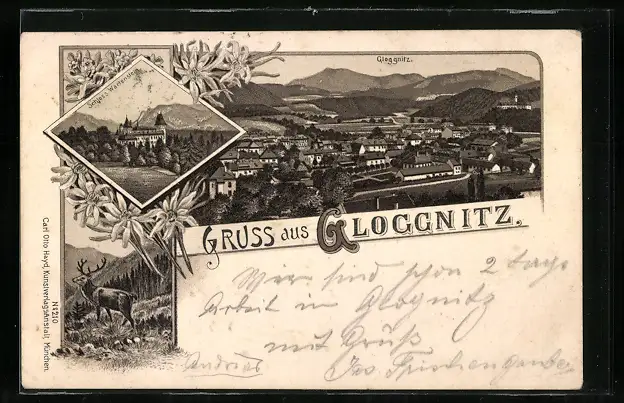 Gloggnitz.
Schloss Wartenstein
GRUSS aus GLOGGNITZ.
Wir sind schon 2 tage
Arbeit in Glognitz
mit Gruß
Andrias Jos
Carl Otto Hayd, Kunstverlagsanstalt, München.
N:1210